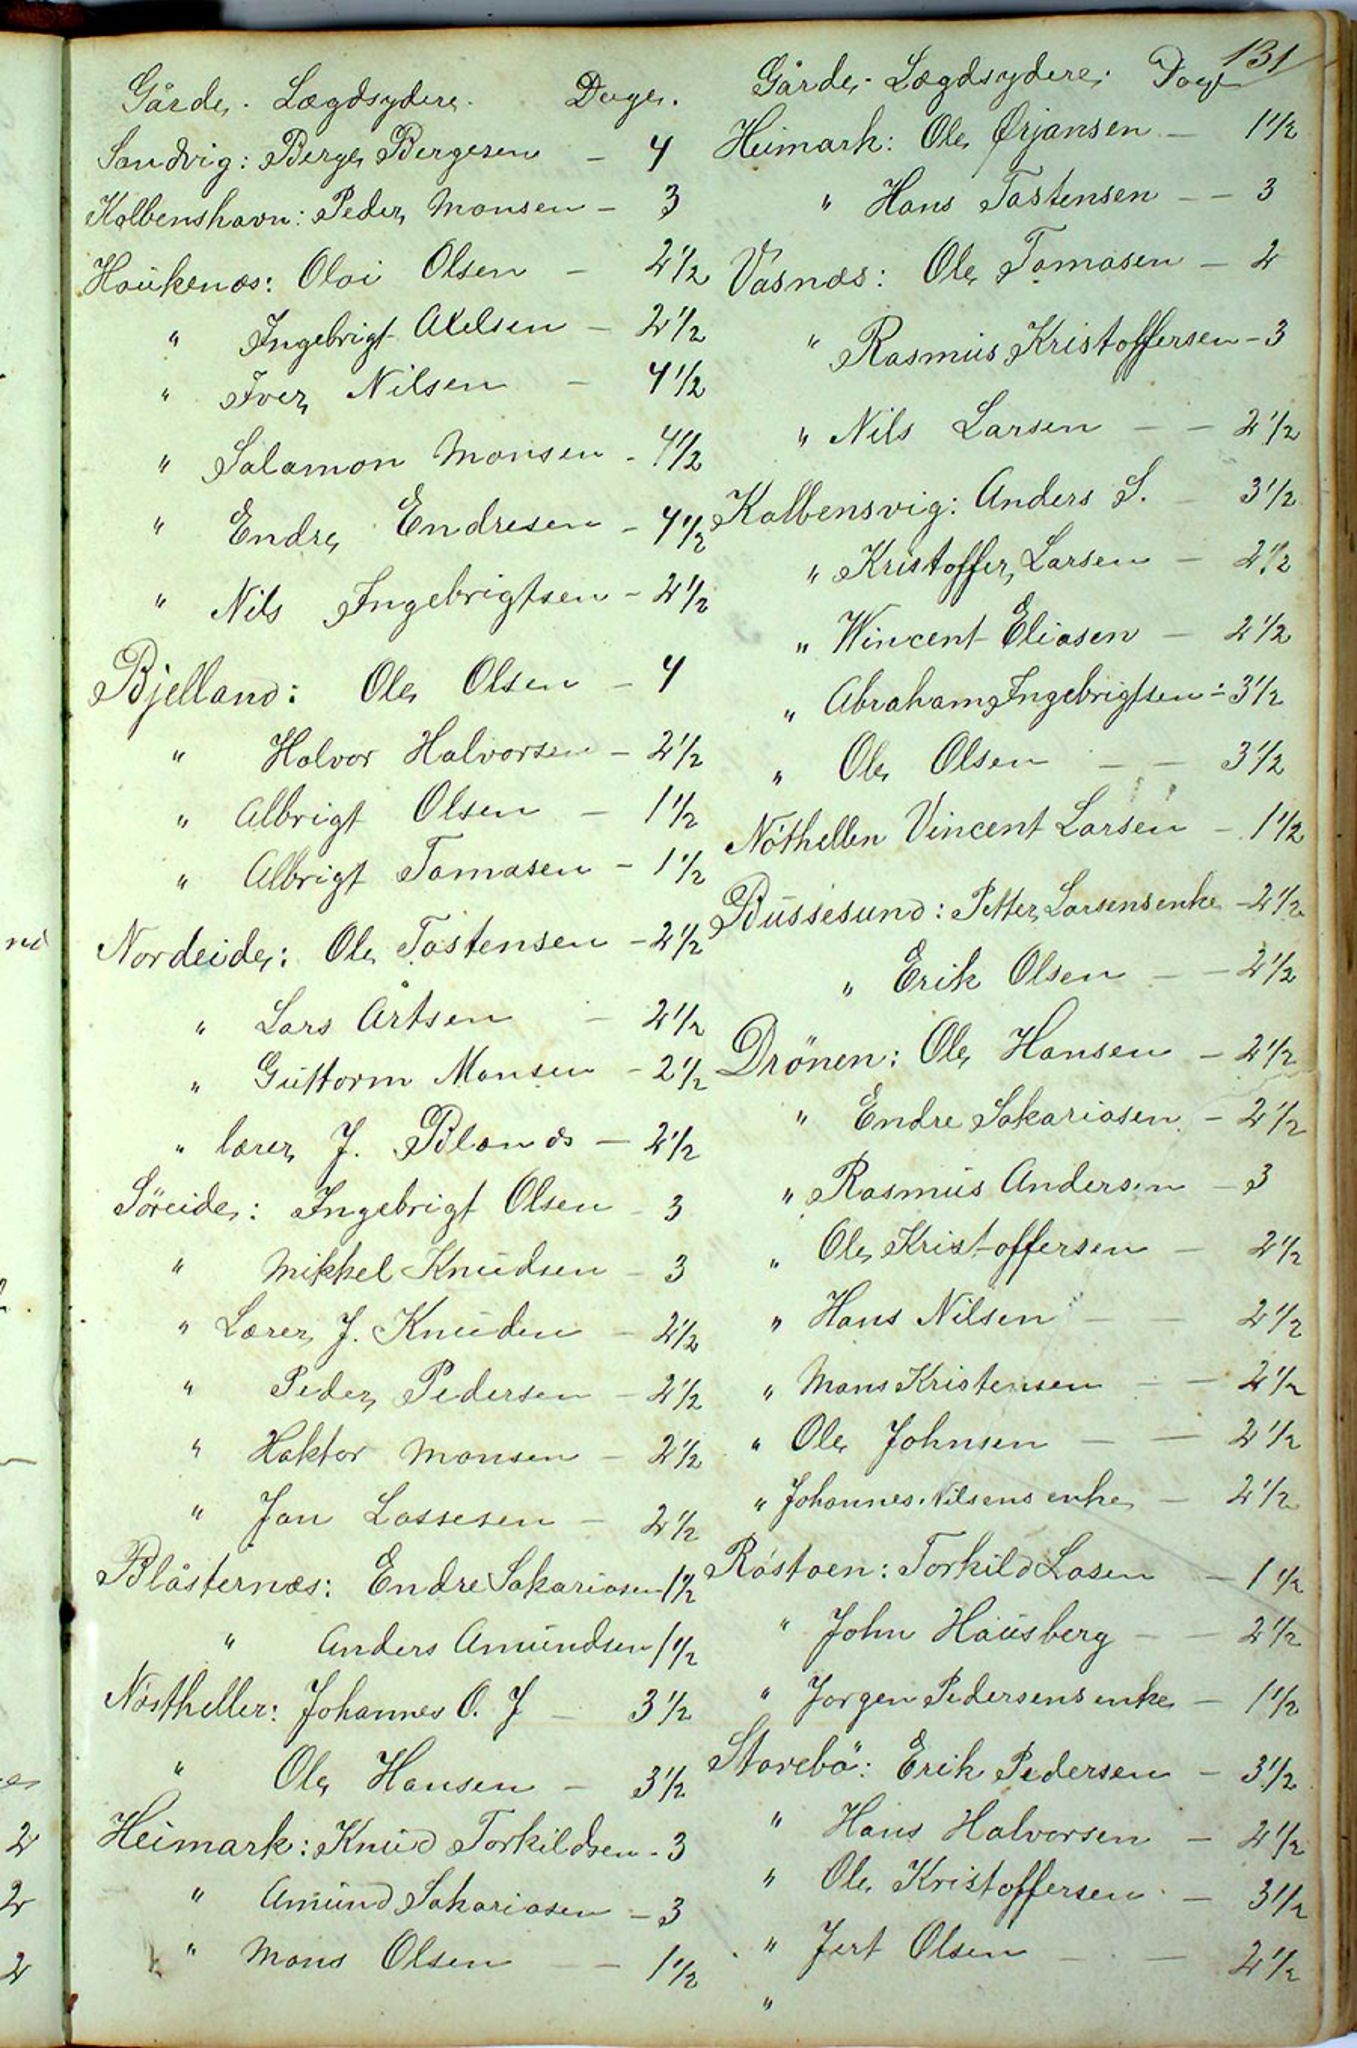 131
Gårde. Lægdsydere. Dage.
Sandvig: Berge Bergesen - 4
Kolbenshavn: Peder Monsen - 3
Haukenæs: Oloi Olsen - 2 1/2
" Ingebrigt Axelsen - 2 1/2
" Iver Nilsen - 4 1/2
" Salamon Monsen - 4 1/2
" Endre Endresen - 4 1/2
" Nils Ingebrigtsen - 2 1/2
Bjelland: Ole Olsen - 4
" Halvor Halvorsen - 2 1/2
" Albrigt Olsen - 1 1/2
" Albrigt Tomasen - 1 1/2
Nordeide: Ole Tostensen - 2 1/2
" Lars Årtsen - 2 1/2
" Guttorm Monsen - 2 1/2
" lærer J. Blænes - 2 1/2
Söreide: Ingebrigt Olsen - 3
" Mikkel Knudsen - 3
" Lærer J. Knuden - 2 1/2
" Peder Pedersen - 2 1/2
" Haktor Monsen - 2 1/2
" Jan Lassesen - 2 1/2
Blåsternæs: Endre Sakariasen 1 1/2
" Anders Amundsen 1 1/2
Nøstheller: Johannes O. J - 3 1/2
" Ole Hansen - 3 1/2
Heimark: Knud Torkildsen - 3
" Amund Sakariasen - 3
" Mons Olsen - - 1 1/2
Gårde. Lægdsydere. Dage
Heimark: Ole Ørjansen - 1 1/2
" Hans Tostensen - - 3
Vasnæs: Ole Tomasen - 2
" Rasmus Kristoffersen - 3
" Nils Larsen - - 2 1/2
Kolbensvig: Anders S. - 3 1/2
" Kristoffer Larsen - 2 1/2
" Wincent Eliasen - 2 1/2
" Abraham Ingebrigtsen - 3 1/2
" Ole Olsen - - 3 1/2
Nóthellen Vincent Larsen - 1 1/2
Bussesund: Petter Larsens enke - 2 1/2
" Erik Olsen - - 2 1/2
Drönen: Ole Hansen - 2 1/2
" Endre Sakariasen - 2 1/2
" Rasmus Andersen - 3
" Ole Kristoffersen - 2 1/2
" Hans Nilsen - - 2 1/2
" Mons Kristensen - - 2 1/2
" Ole Johnsen - - 2 1/2
" Johannes Nilsens enke - 2 1/2
Róstøen: Torkild Lasen - 1 1/2
" John Hausberg - - 2 1/2
" Jorgen Pedersens enke - 1 1/2
Storebö: Erik Pedersen - 3 1/2
" Hans Halvorsen - 2 1/2
" Ole Kristoffersen - 3 1/2
" Jert Olsen - - 2 1/2
"